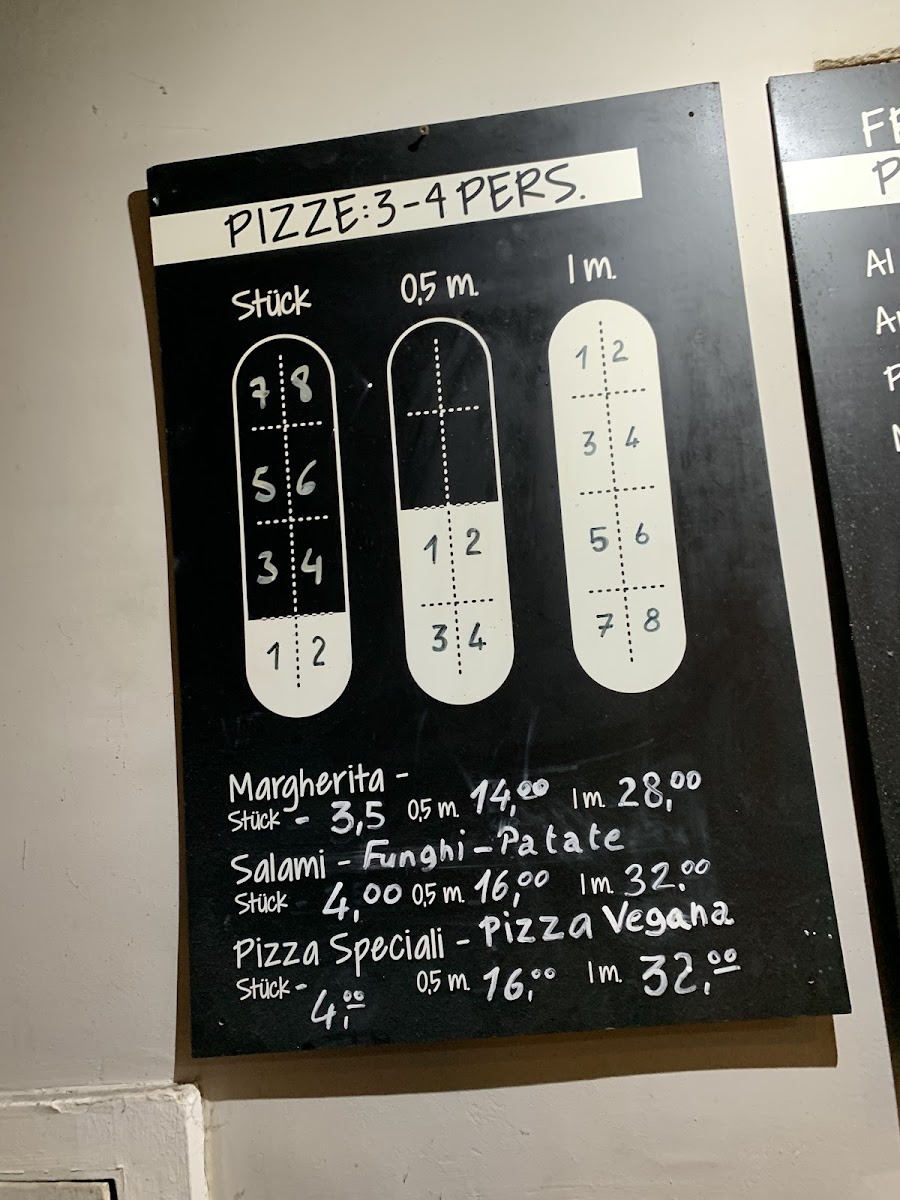 PIZZE: 3-4 PERS.
Stück 0,5 m. 1 m.
7 8
5 6
3 4
1 2
1 2
3 4
1 2
3 4
5 6
7 8
Margherita -
Stück - 3,5 0,5 m. 14,00 1 m. 28,00
Salami - Funghi - Patate
Stück 4,00 0,5 m. 16,00 1 m. 32,00
Pizza Speciali - Pizza Vegana
Stück - 4,00 0,5 m. 16,00 1 m. 32,00